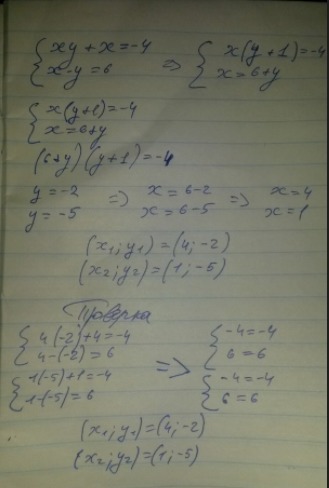 { xy + x = -4 => { x(y + 1) = -4
{ x - y = 6 { x = 6 + y
{ x(y+1) = -4
{ x = 6+y
(6+y)(y+1) = -4
y = -2 => x = 6-2 => x = 4
y = -5 x = 6-5 x = 1
(x₁; y₁) = (4; -2)
(x₂; y₂) = (1; -5)
Проверка
{ 4(-2)+4 = -4 { -4 = -4
{ 4-(-2) = 6 => { 6 = 6
{ 1(-5)+1 = -4 { -4 = -4
{ 1-(-5) = 6 { 6 = 6
(x₁; y₁) = (4; -2)
(x₂; y₂) = (1; -5)